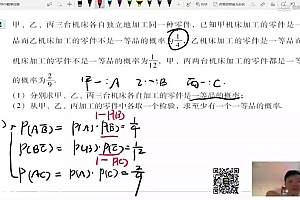 甲、乙、丙三台机床各自独立地加工同一种零件，已知甲机床加工的零件是一等
品而乙机床加工的零件不是一等品的概率为 1/4，乙机床加工的零件是一等品而丙
机床加工的零件不是一等品的概率为 1/12，甲、丙两台机床加工的零件都是一等品
的概率为 2/9. 甲一: A 乙一: B 丙一: C
(1) 分别求甲、乙、丙三台机床各自加工的零件是一等品的概率;
(2) 从甲、乙、丙加工的零件中各取一个检验，求至少有一个一等品的概率.
1-P(B)
P(AB̄) = P(A)·P(B̄) = 1/4
P(BC̄) = P(B)·P(C̄) = 1/12
1-P(C)
P(AC) = P(A)·P(C) = 2/9